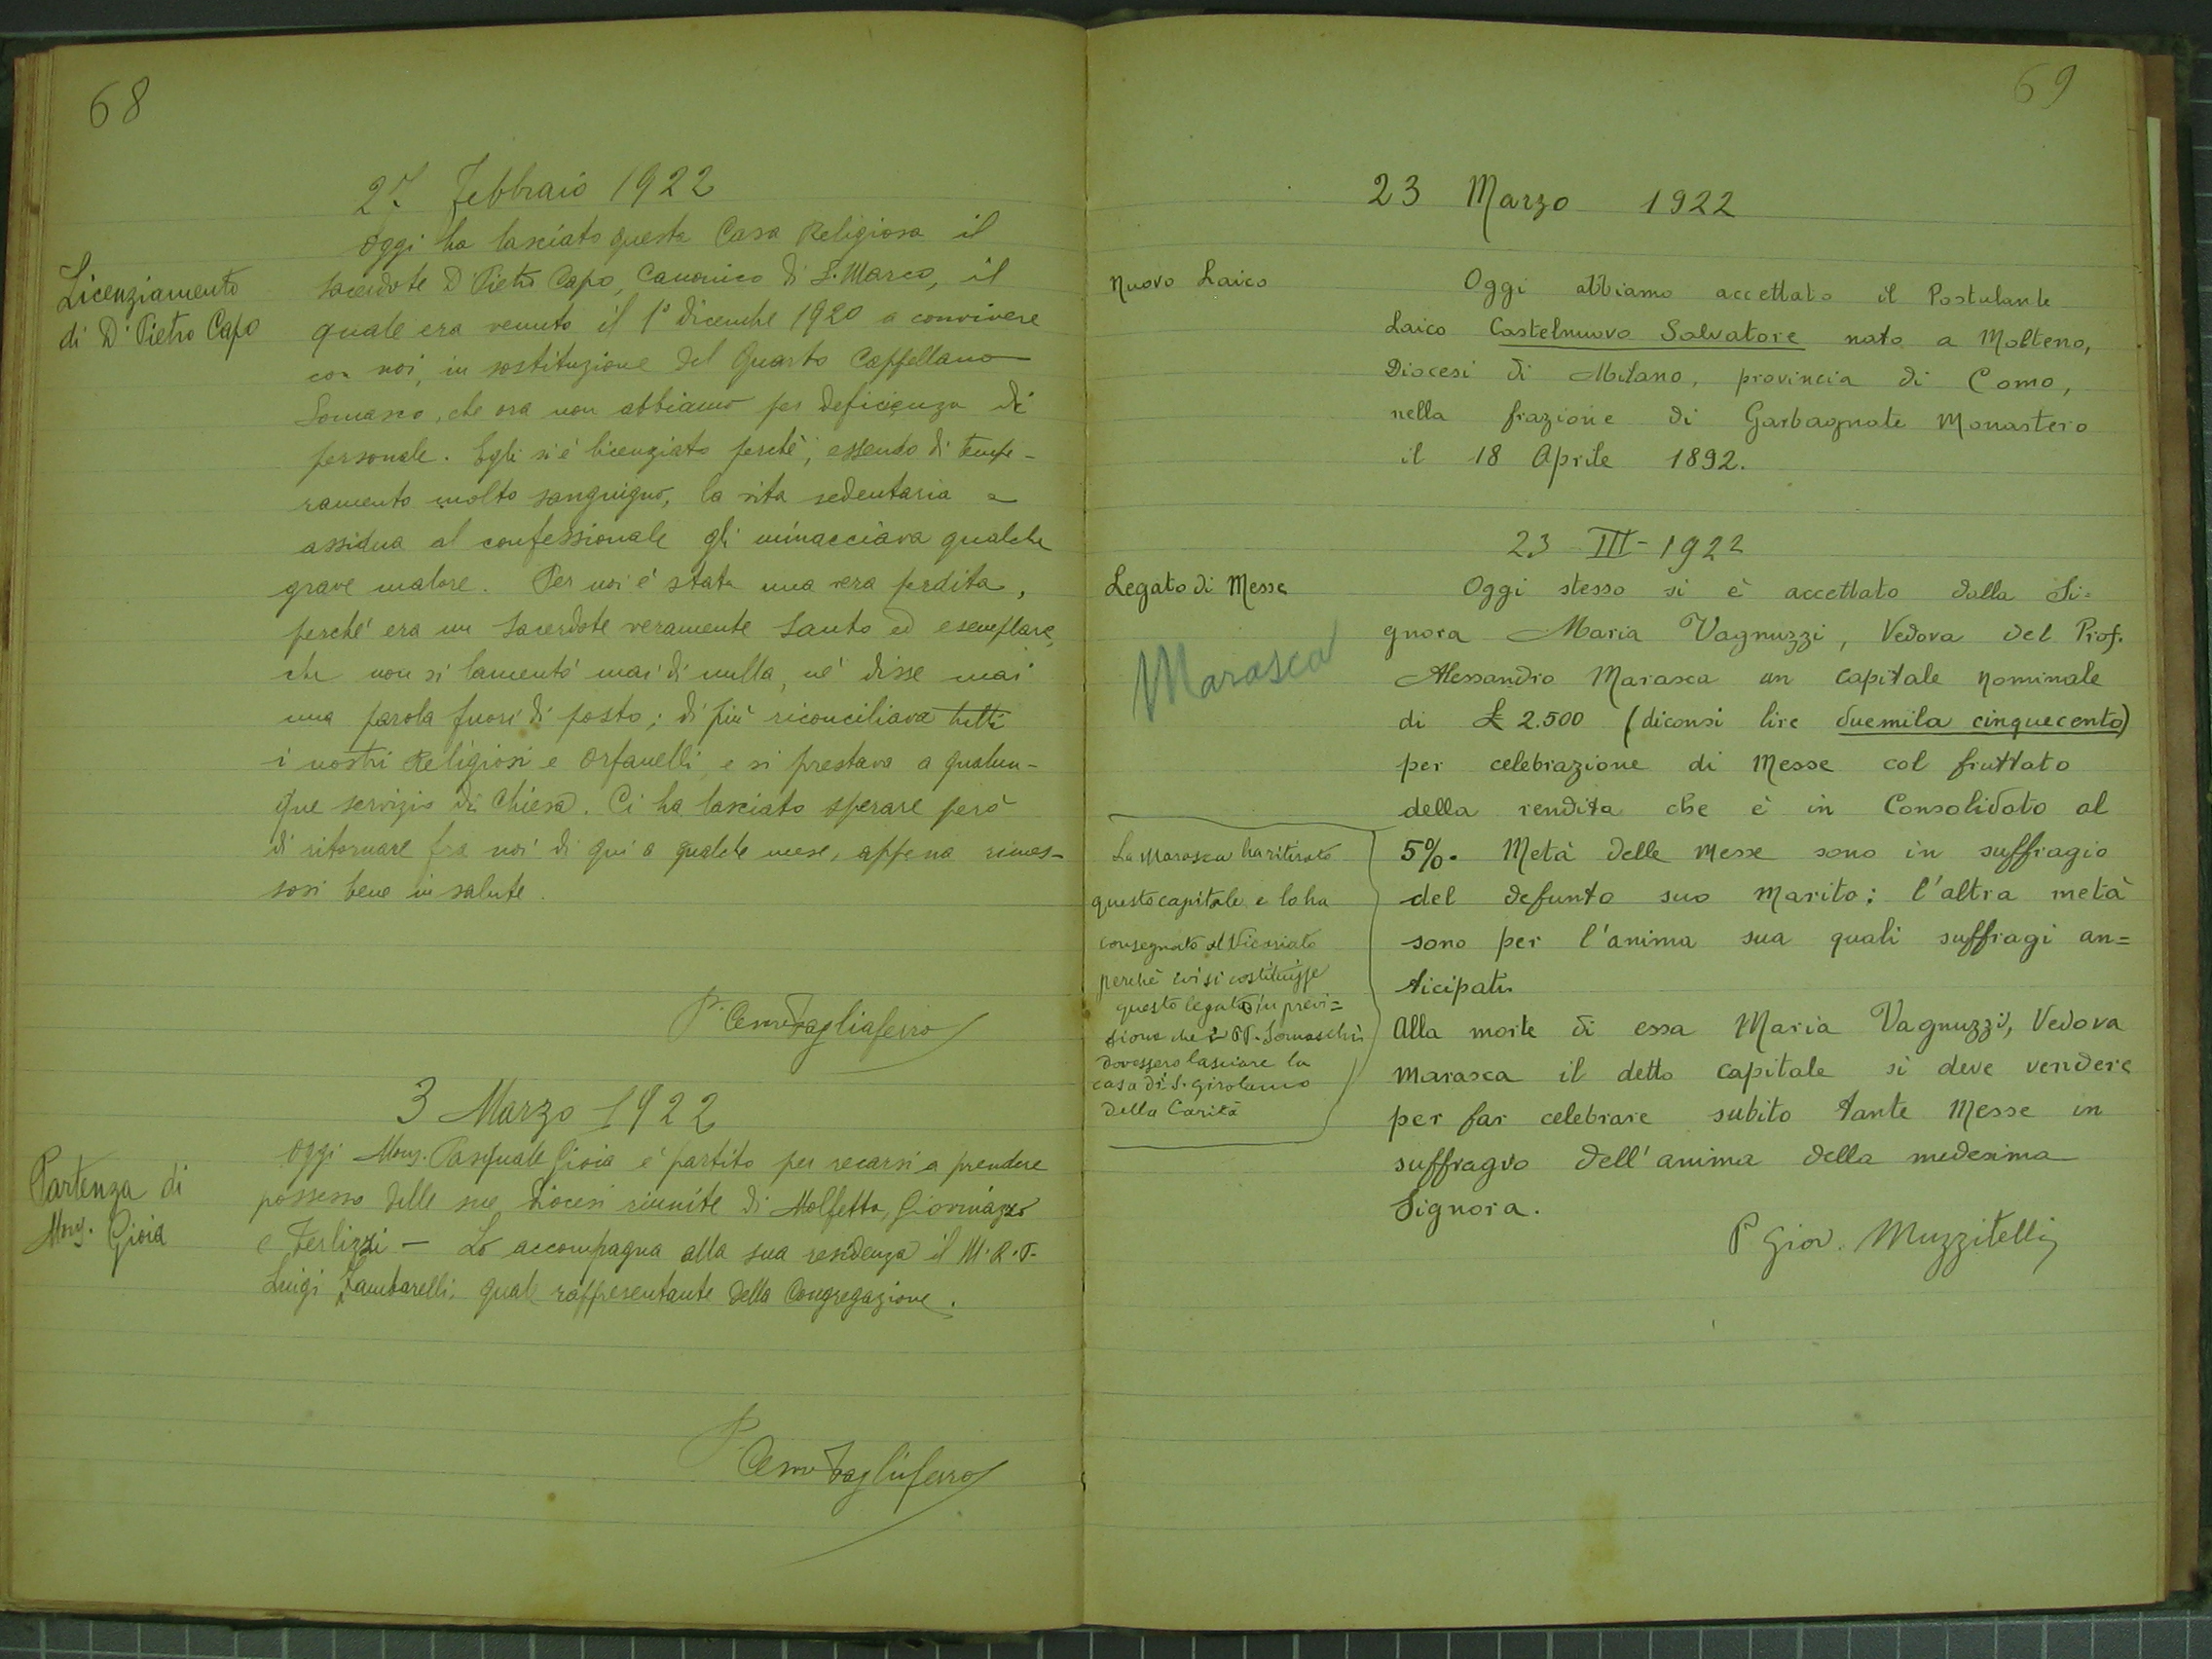 68
27 Febbraio 1922
Licenziamento
di D. Pietro Capo
Oggi ha lasciato questa Casa Religiosa il
sacerdote D. Pietro Capo, Canonico di S. Marco, il
quale era venuto il 1° dicembre 1920 a convivere
con noi, in sostituzione del Quarto Cappellano
Somasco, che ora non abbiamo per deficienza di
personale. Egli si è licenziato perchè, essendo di tempe-
ramento molto sanguigno, la vita sedentaria e
assidua al confessionale gli minacciava qualche
grave malore. Per noi è stata una vera perdita,
perchè era un Sacerdote veramente Santo ed esemplare,
che non si lamentò mai di nulla, nè disse mai
una parola fuori di posto; di più riconciliava tutti
i nostri Religiosi e Orfanelli, e si prestava a qualun-
que servizio di Chiesa. Ci ha lasciato sperare però
di ritornare fra noi di qui a qualche mese, appena rimes-
sosi bene in salute.
P. Cesare Tagliaferro
3 Marzo 1922
Partenza di
Mons. Gioia
Oggi Mons. Pasquale Gioia è partito per recarsi a prendere
possesso delle sue Diocesi riunite di Molfetta, Giovinazzo
e Terlizzi - Lo accompagna alla sua residenza il M. R. P.
Luigi Zambarelli, quale rappresentante della Congregazione.
P. Cesare Tagliaferro
69
23 Marzo 1922
Nuovo Laico
Oggi abbiamo accettato il Postulante
Laico Castelnuovo Salvatore nato a Molteno,
Diocesi di Milano, provincia di Como,
nella frazione di Garbagnate Monastero
il 18 Aprile 1892.
23 - III - 1922
Legato di Messe
Marasca
Oggi stesso si è accettato dalla Si=
gnora Maria Vagnuzzi, Vedova del Prof.
Alessandro Marasca un capitale nominale
di £ 2.500 (diconsi lire duemila cinquecento)
per celebrazione di Messe col fruttato
della rendita che è in Consolidato al
5%. Metà delle Messe sono in suffragio
del defunto suo Marito; l'altra metà
sono per l'anima sua quali suffragi an=
ticipati.
Alla morte di essa Maria Vagnuzzi, Vedova
Marasca il detto capitale si deve vendere
per far celebrare subito tante Messe in
suffragio dell'anima della medesima
Signora.
P. Giov. Muzzitelli
La Marasca ha ritirato
questo capitale e lo ha
consegnato al Vicariato
perchè ivi si costituisse
questo legato in previ=
sione che i PP. Somaschi
dovessero lasciare la
casa di S. Girolamo
della Carità